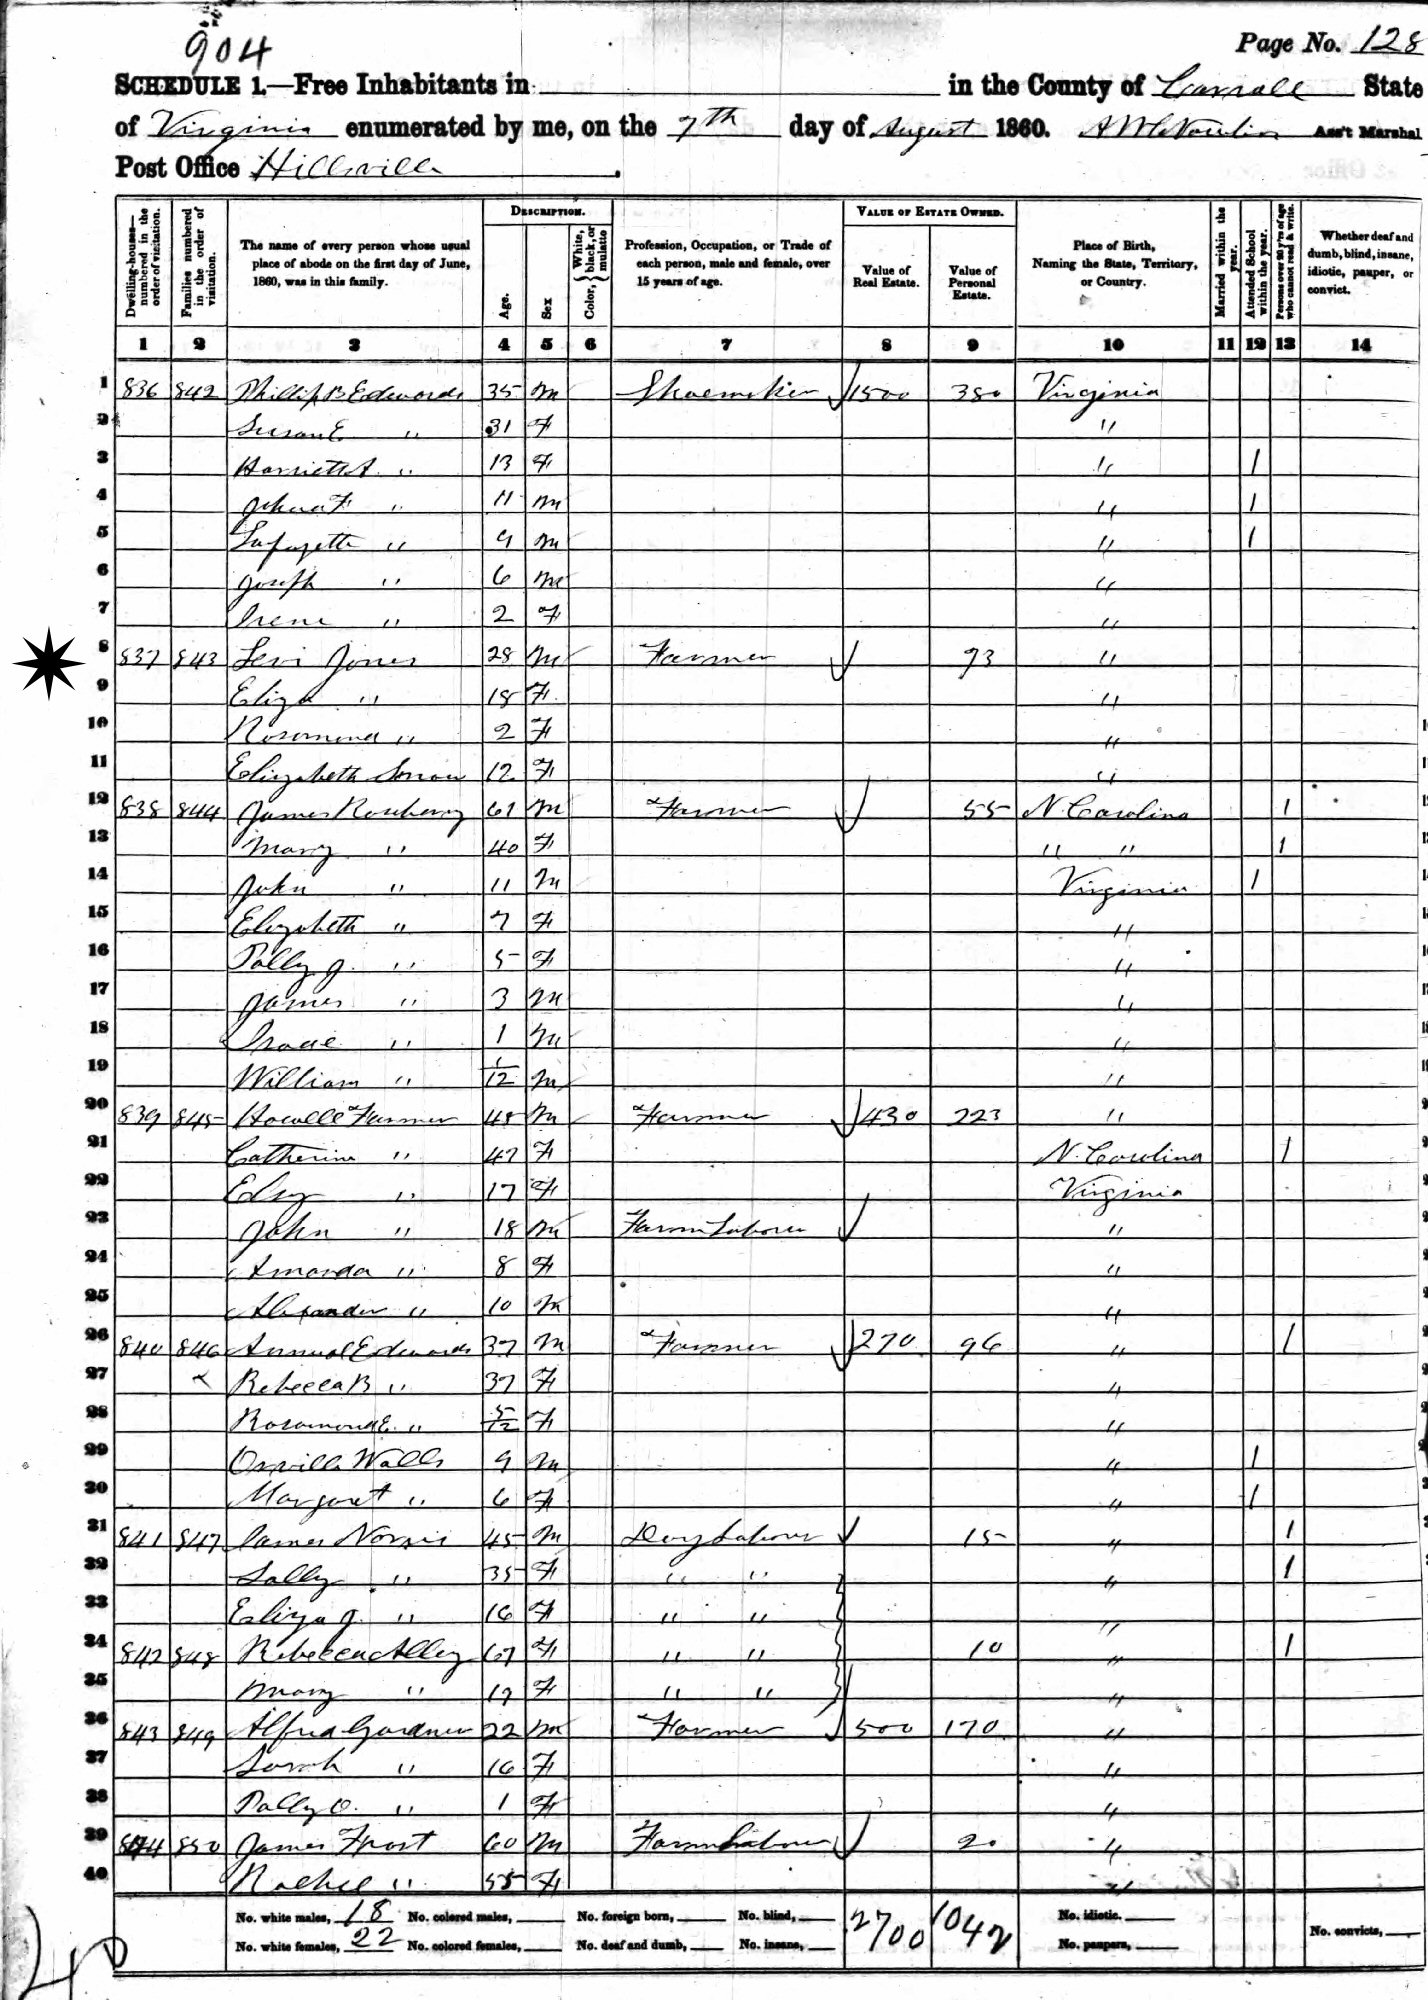 904
Page No. 128
SCHEDULE 1.—Free Inhabitants in in the County of Carroll State
of Virginia enumerated by me, on the 7th day of August 1860. Ass't Marshal
Post Office Hillsville.
DESCRIPTION. VALUE OF ESTATE OWNED.
Dwelling-houses—numbered in the order of visitation. Families numbered in the order of visitation. The name of every person whose usual place of abode on the first day of June, 1860, was in this family. Age. Sex Color, White, black, or mulatto Profession, Occupation, or Trade of each person, male and female, over 15 years of age. Value of Real Estate. Value of Personal Estate. Place of Birth, Naming the State, Territory, or Country. Married within the year. Attended School within the year. Persons over 20 y'rs of age who cannot read & write. Whether deaf and dumb, blind, insane, idiotic, pauper, or convict.
1 2 3 4 5 6 7 8 9 10 11 12 13 14
1 836 842 Phillip B Edwards 35 m Shoemaker 1500 380 Virginia
2 Susan E " 31 F "
3 Harriett A. " 13 F " 1
4 " 11 m " 1
5 Lafayette " 9 m " 1
6 Joseph " 6 m "
7 Irene " 2 F "
8 837 843 Levi Jones 28 m Farmer 93 "
9 Eliza " 18 F "
10 Rosamond " 2 F "
11 Elizabeth 12 F "
12 838 844 James Roseberry 61 m Farmer 55 N. Carolina 1
13 Mary " 40 F " " 1
14 John " 11 m Virginia 1
15 Elizabeth " 7 F "
16 Polly J. " 5 F "
17 James " 3 m "
18 " 1 m "
19 William " 1/12 m "
20 839 845 Howell Farmer 48 m Farmer 430 223 "
21 Catherine " 47 F N. Carolina 1
22 " 17 F Virginia
23 John " 18 m Farm Laborer "
24 Amanda " 8 F "
25 Alexander " 10 m "
26 840 846 Edwards 37 m Farmer 270 96 " 1
27 Rebecca B " 37 F "
28 Rosamond E. " 5/12 F "
29 Orville Walls 9 m " 1
30 Margaret " 6 F " 1
31 841 847 James Norris 45 m Day Laborer 15 " 1
32 Sally " 35 F " " " 1
33 Eliza J. " 16 F " " "
34 842 848 Rebecca Alley 67 F " " 10 " 1
35 Mary " 17 F " " "
36 843 849 Alfred Gardner 22 m Farmer 500 170 "
37 Sarah " 16 F "
38 Polly O. " 1 F "
39 844 850 James Frost 60 m Farm Laborer 20 "
40 Rachel " 55 F "
No. white males, 18 No. colored males, No. foreign born, No. blind, 2700 1042 No. idiotic. No. convicts,
No. white females, 22 No. colored females, No. deaf and dumb, No. insane, No. paupers,
40